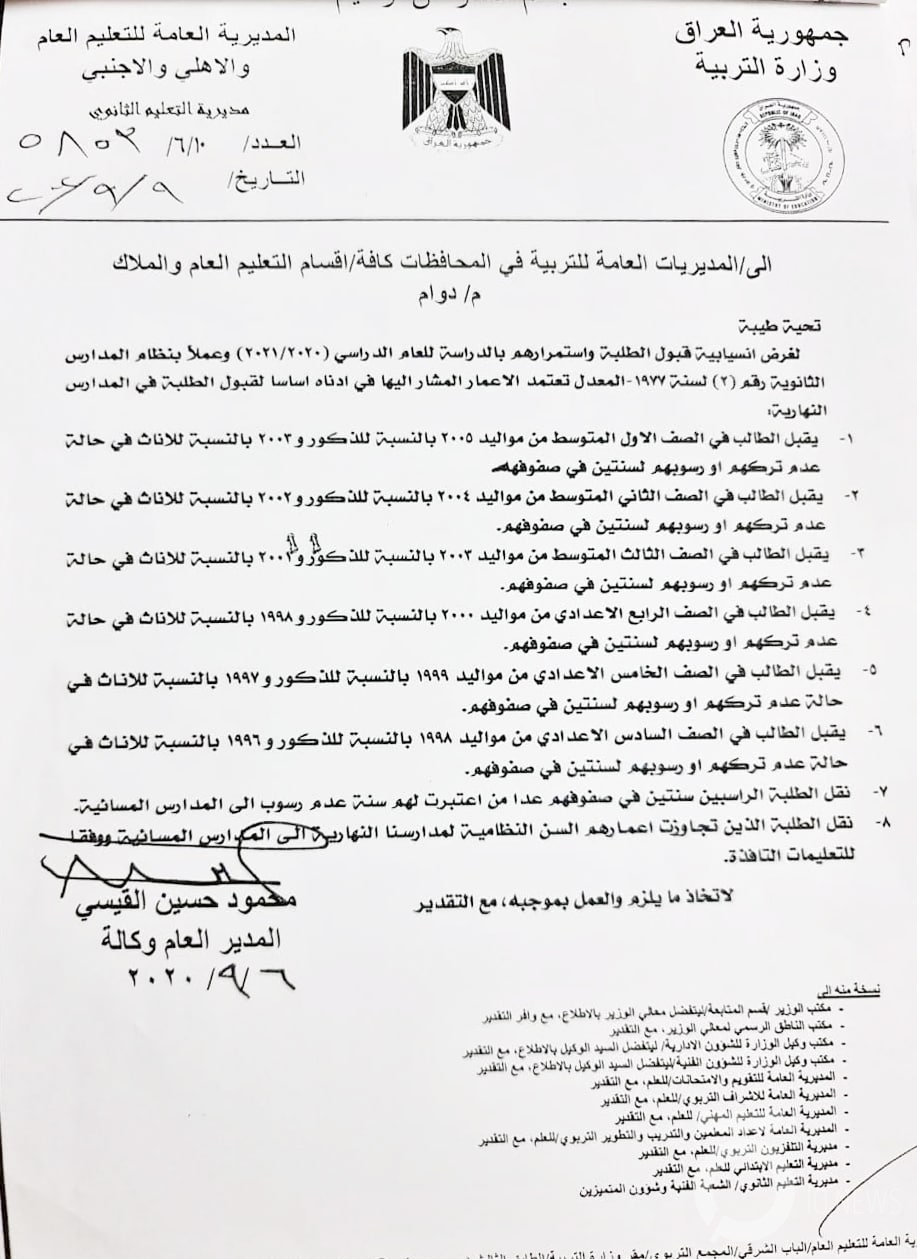 جمهورية العراق
وزارة التربية
جمهورية العراق
المديرية العامة للتعليم العام
والاهلي والاجنبي
مديرية التعليم الثانوي
العدد/ ٦/١٠/ ٥٨٥٣
التاريخ/ ٩/٩/
الى/المديريات العامة للتربية في المحافظات كافة/اقسام التعليم العام والملاك
م/ دوام
تحية طيبة
لغرض انسيابية قبول الطلبة واستمرارهم بالدراسة للعام الدراسي (٢٠٢١/٢٠٢٠) وعملاً بنظام المدارس
الثانوية رقم (٢) لسنة ١٩٧٧-المعدل تعتمد الاعمار المشار اليها في ادناه اساسا لقبول الطلبة في المدارس
النهارية:
١- يقبل الطالب في الصف الاول المتوسط من مواليد ٢٠٠٥ بالنسبة للذكور و٢٠٠٣ بالنسبة للاناث في حالة
عدم تركهم او رسوبهم لسنتين في صفوفهم
٢- يقبل الطالب في الصف الثاني المتوسط من مواليد ٢٠٠٤ بالنسبة للذكور و٢٠٠٢ بالنسبة للاناث في حالة
عدم تركهم او رسوبهم لسنتين في صفوفهم.
٣- يقبل الطالب في الصف الثالث المتوسط من مواليد ٢٠٠٣ بالنسبة للذكور بالنسبة للاناث في حالة
عدم تركهم او رسوبهم لسنتين في صفوفهم.
٤- يقبل الطالب في الصف الرابع الاعدادي من مواليد ٢٠٠٠ بالنسبة للذكور و١٩٩٨ بالنسبة للاناث في حالة
عدم تركهم او رسوبهم لسنتين في صفوفهم.
٥- يقبل الطالب في الصف الخامس الاعدادي من مواليد ١٩٩٩ بالنسبة للذكور و١٩٩٧ بالنسبة للاناث في
حالة عدم تركهم او رسوبهم لسنتين في صفوفهم.
٦- يقبل الطالب في الصف السادس الاعدادي من مواليد ١٩٩٨ بالنسبة للذكور و١٩٩٦ بالنسبة للاناث في
حالة عدم تركهم او رسوبهم لسنتين في صفوفهم.
٧- نقل الطلبة الراسبين سنتين في صفوفهم عدا من اعتبرت لهم سنة عدم رسوب الى المدارس المسائية.
٨- نقل الطلبة الذين تجاوزت اعمارهم السن النظامية لمدارسنا النهارية الى المدارس المسائية ووفقا
للتعليمات النافذة.
لاتخاذ ما يلزم والعمل بموجبه، مع التقدير
محمود حسين القيسي
المدير العام وكالة
٦/٩/ ٢٠٢٠
نسخة منه الى
- مكتب الوزير /قسم المتابعة/ليتفضل معالي الوزير بالاطلاع، مع وافر التقدير
- مكتب الناطق الرسمي لمعالي الوزير، مع التقدير
- مكتب وكيل الوزارة للشؤون الادارية/ ليتفضل السيد الوكيل بالاطلاع، مع التقدير
- مكتب وكيل الوزارة للشؤون الفنية/ليتفضل السيد الوكيل بالاطلاع، مع التقدير
- المديرية العامة للتقويم والامتحانات/للعلم، مع التقدير
- المديرية العامة للاشراف التربوي/للعلم، مع التقدير
- المديرية العامة للتعليم المهني/ للعلم، مع التقدير
- المديرية العامة لاعداد المعلمين والتدريب والتطوير التربوي/للعلم، مع التقدير
- مديرية التلفزيون التربوي/للعلم، مع التقدير
- مديرية التعليم الابتدائي للعلم، مع التقدير
- مديرية التعليم الثانوي/ الشعبة الفنية وشؤون المتميزين
العامة للتعليم العام/الباب الشرقي/المجمع التربوي/مقر وزارة التربية/